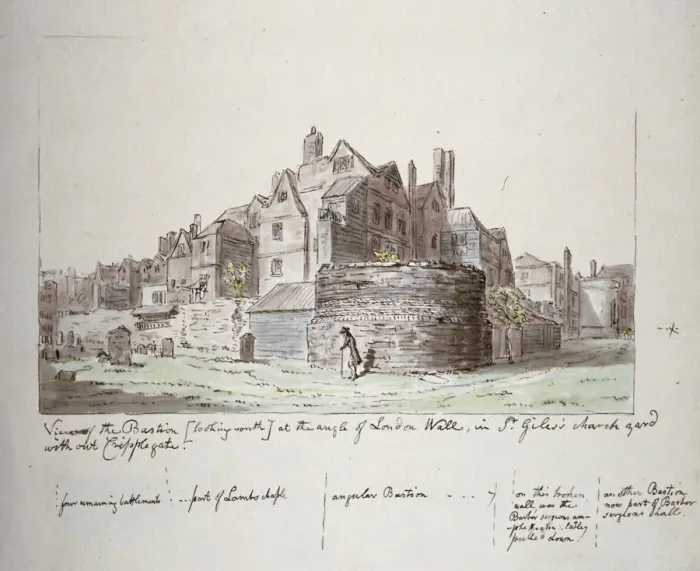 View of the Bastion [looking south] at the angle of London Wall, in St. Giles's church yard
without Cripplegate.
four remaining battlements
part of Lambs chaple
angular Bastion
on this broken
wall was the
Barber surgeons am-
phitheatre lately
pulled down.
another Bastion
now part of Barber
surgeons hall.